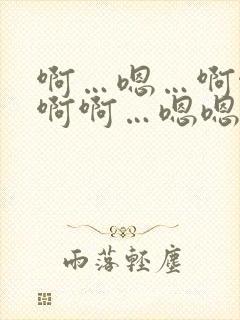 啊…嗯…啊
啊啊…嗯嗯
雨落轻尘